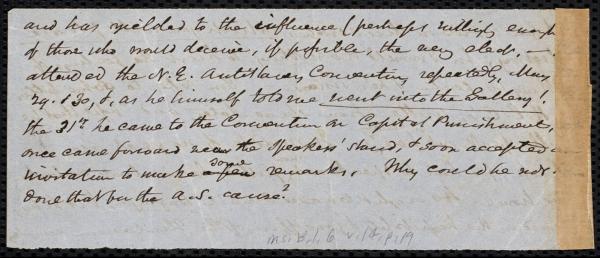 and has yielded to the influence (perhaps willingly enough
of those who would deceive, if possible, the very elect, —
attended the N. E. Antislavery Convention repeatedly, May
29. & 30, &, as he himself told me went into the Gallery!
the 31st he came to the Convention on Capital Punishment,
once came forward near the speakers' stand, & soon accepted an
invitation to make some remarks. Why could he not
done that for the A.S. cause?